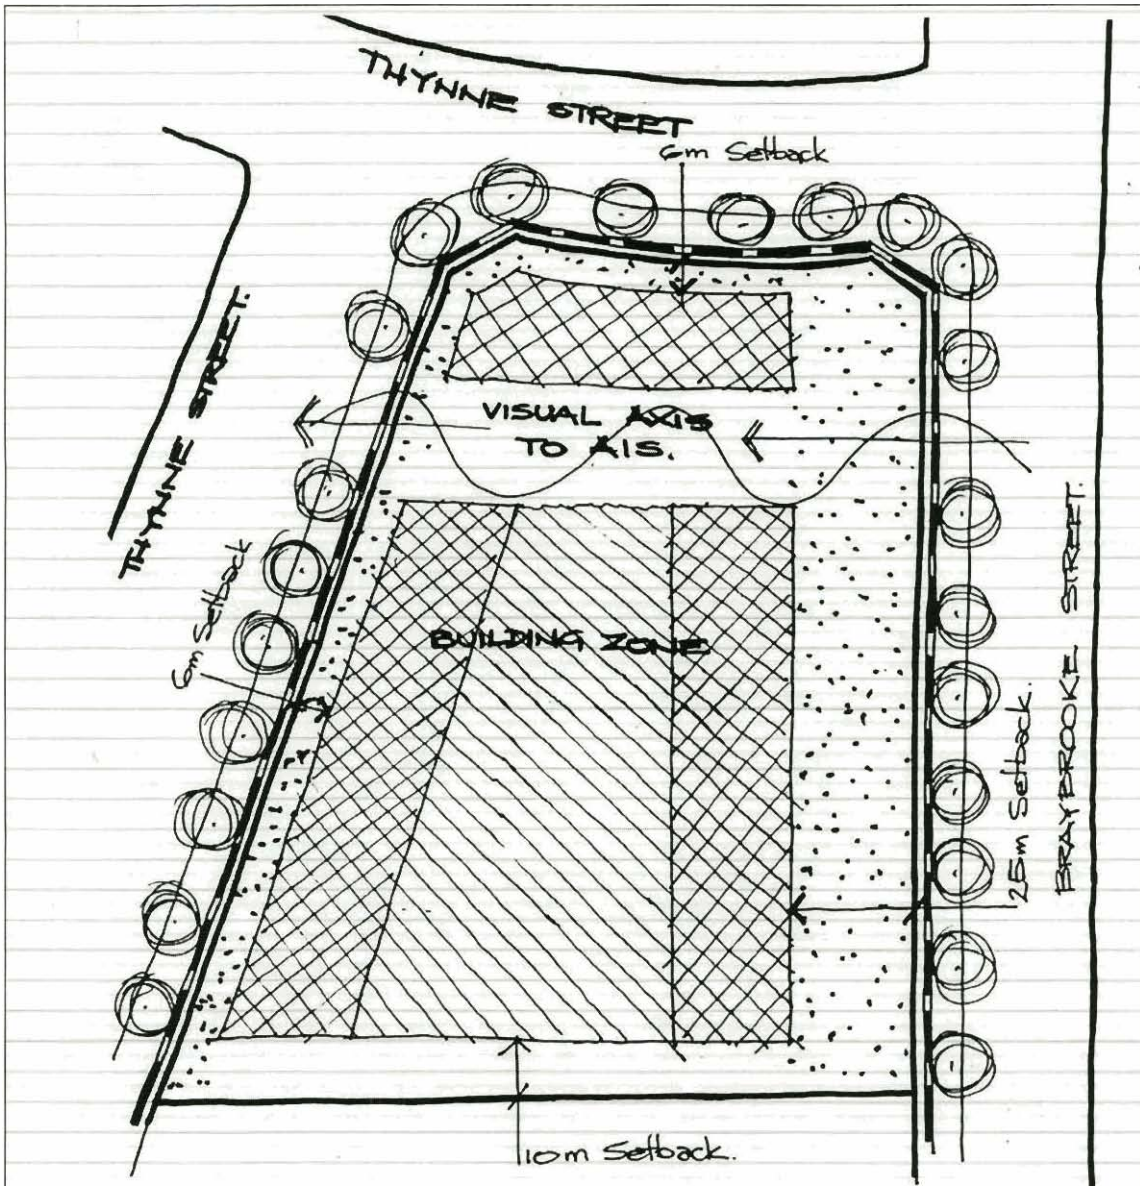 THYNNE STREET
6m Setback
THYNNE STREET.
VISUAL AXIS
TO AIS.
6m Setback
BUILDING ZONE
25m Setback.
BRAYBROOKE STREET.
10m Setback.